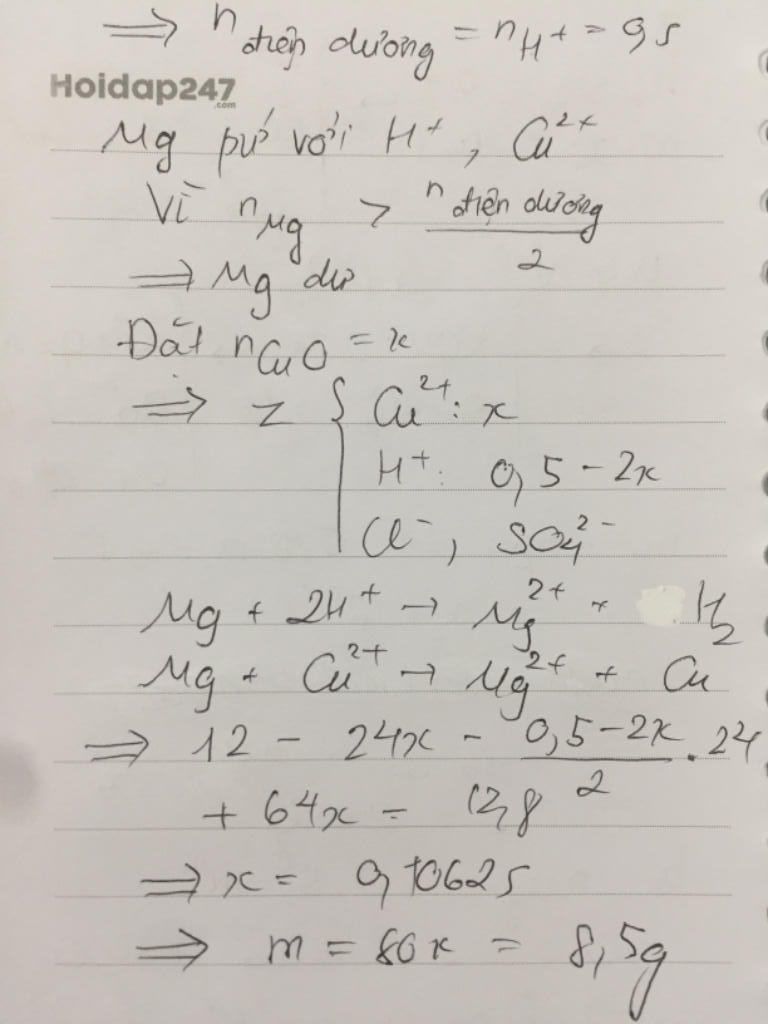 ⇒ n điện dương = nH+ = 0,5
Hoidap247
.com
Mg pứ với H+, Cu2+
Vì nMg > n điện dương / 2
⇒ Mg dư
Đặt nCuO = x
⇒ Z { Cu2+: x
H+: 0,5 - 2x
Cl-, SO4 2-
Mg + 2H+ → Mg2+ + H2
Mg + Cu2+ → Mg2+ + Cu
⇒ 12 - 24x - (0,5 - 2x)/2 . 24
+ 64x = 12,8
⇒ x = 0,10625
⇒ m = 80x = 8,5g